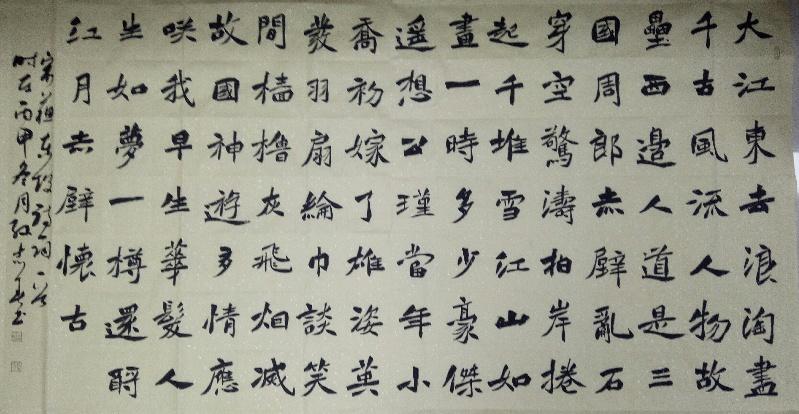 大江東去浪淘盡
千古風流人物故
壘西邊人道是三
國周郎赤壁亂石
穿空驚濤拍岸捲
起千堆雪江山如
畫一時多少豪傑
遥想公瑾當年小
喬初嫁了雄姿英
發羽扇綸巾談笑
間檣櫓灰飛烟滅
故國神遊多情應
咲我早生華髮人
生如夢一樽還酹
江月赤壁懷古
宋蘇東坡詞一首
时在丙申冬月書